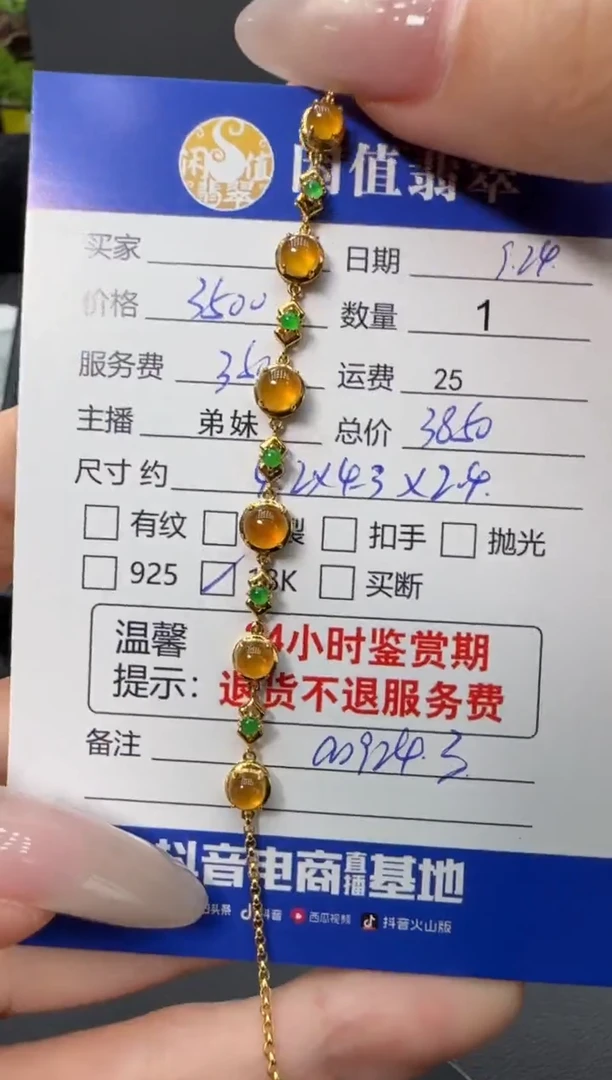 闲值翡翠
闲值翡翠
买家 日期 9.24
价格 3500 数量 1
服务费 350 运费 25
主播 弟妹 总价 3850
尺寸 约 4.2×4.3×2.4
有纹 扣手 抛光
925 8K 买断
温馨 24小时鉴赏期
提示： 退货不退服务费
备注 924.3
抖音电商直播基地
头条 抖音 西瓜视频 抖音火山版